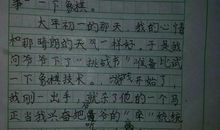 事"一下象棋。
大年初一的那天，我的心情
如那晴朗的天气一样好，于是我
向爷爷下了"挑战书"准备比试
一下象棋技术。游戏开始了，
我刚一出手，就杀了他的一个马
正当我兴奋地爷爷的"车"统统